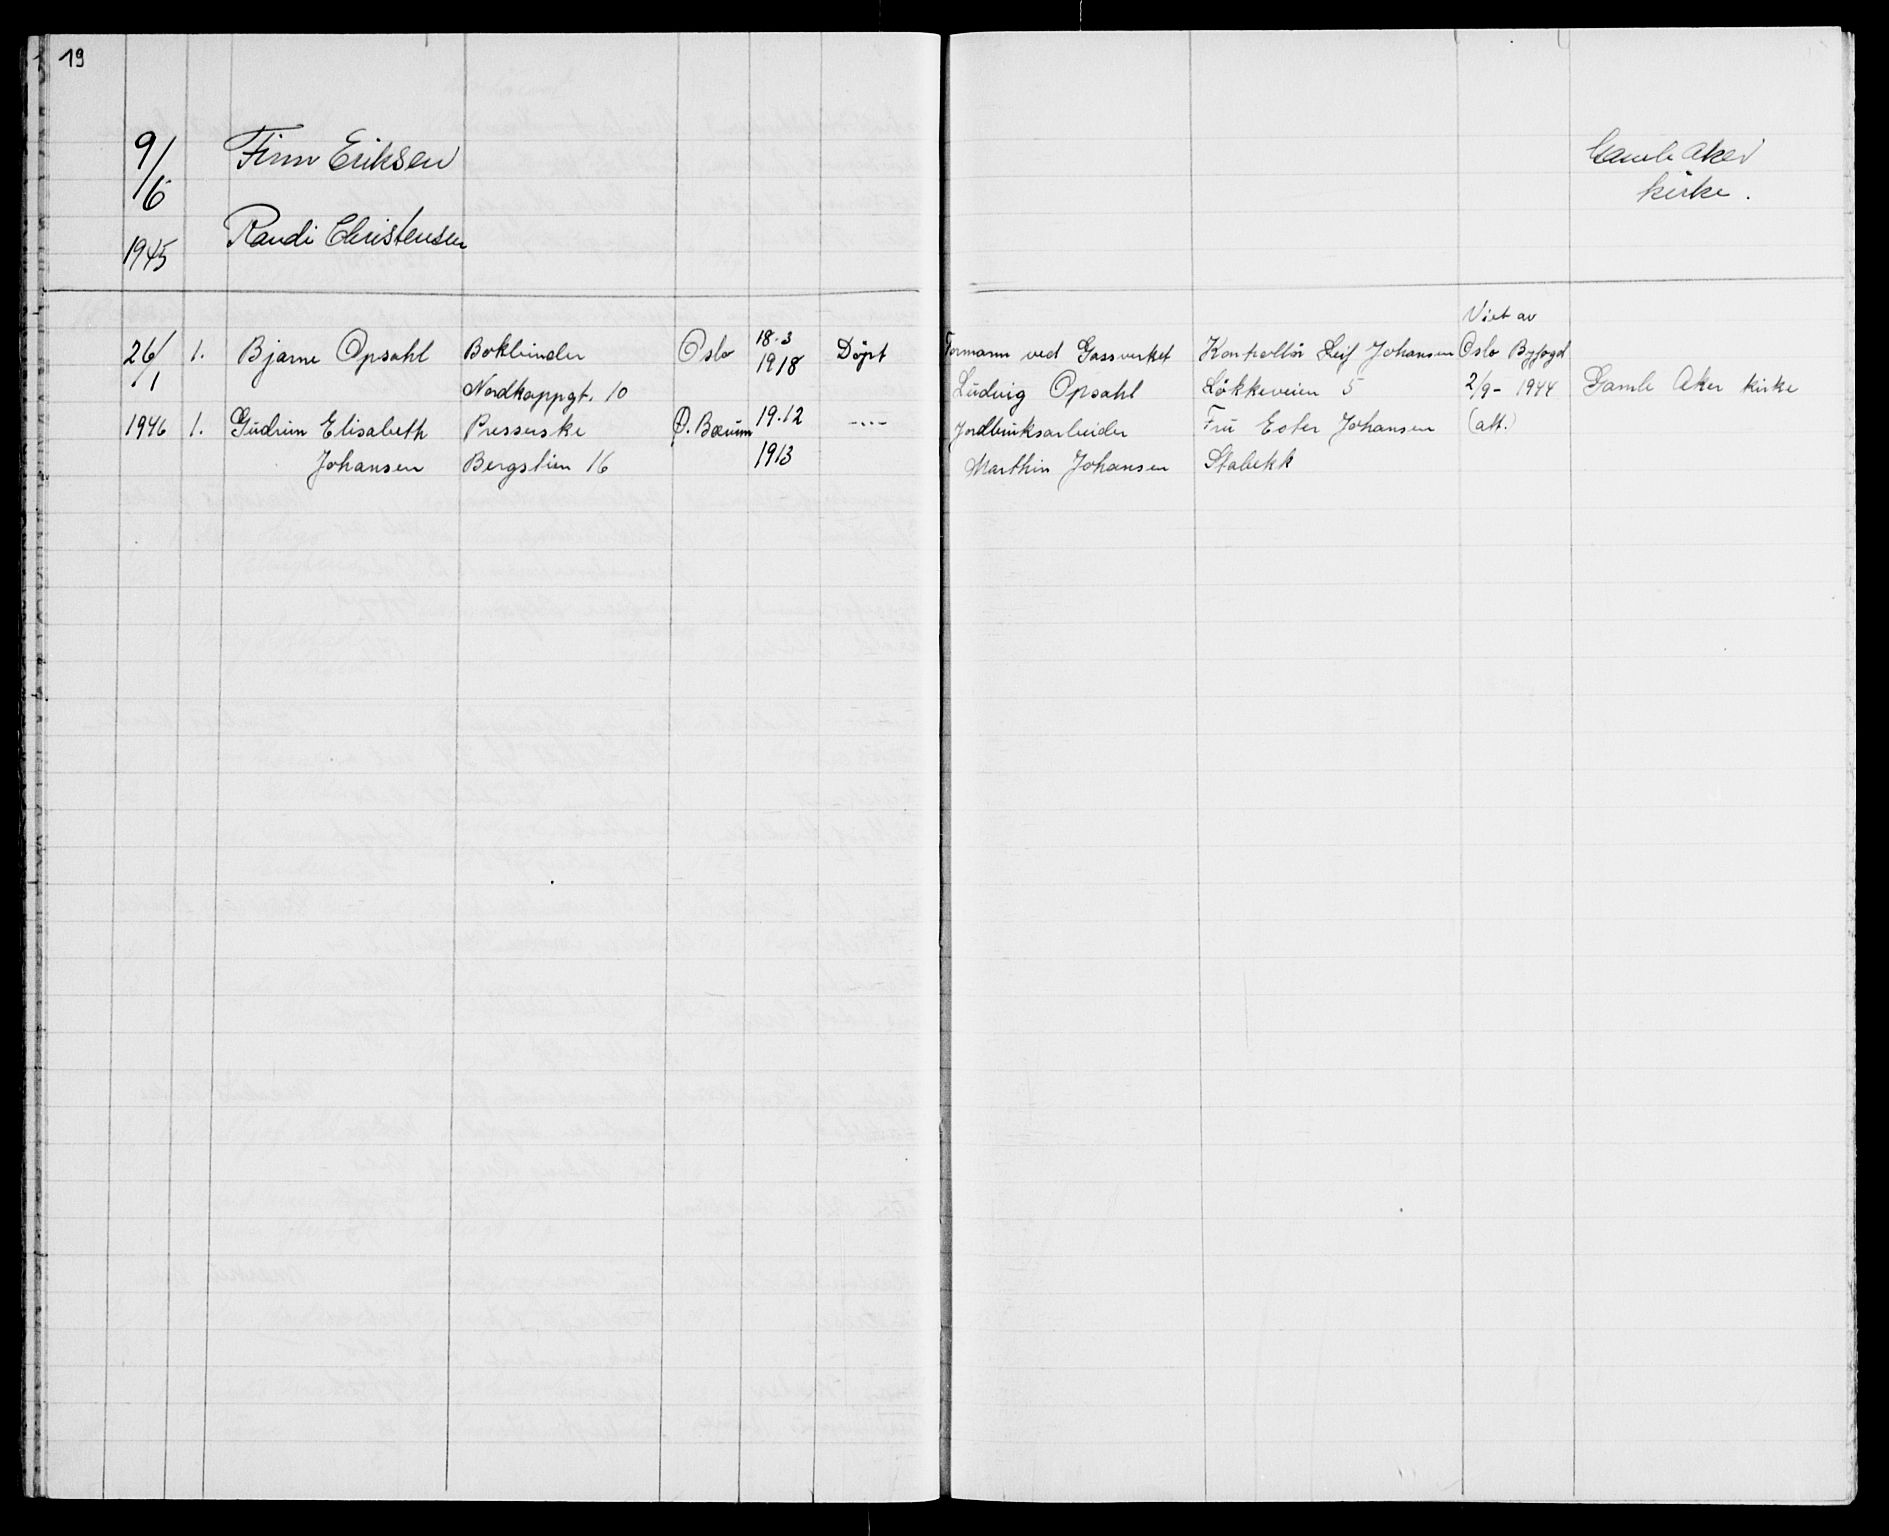 19
9/6 Finn Eriksen Gamle Aker
kirke.
1945 Randi Christensen
Viet av
26/1 1. Bjarne Opsahl Bokbinder Oslo 18-3 1918 Döpt Formann ved Gassverket Kontrollör Leif Johansen Oslo Byfogd
Nordkappgt. 10 Ludvig Opsahl Lökkeveien 5 2/9- 1944 Gamle Aker kirke
1946 1. Gudrun Elisabeth Presserske Ø. Bærum 19.12 -"- Jordbruksarbeider Fru Ester Johansen (att.)
Johansen Bergstien 16 1913 Marthin Johansen Stabekk